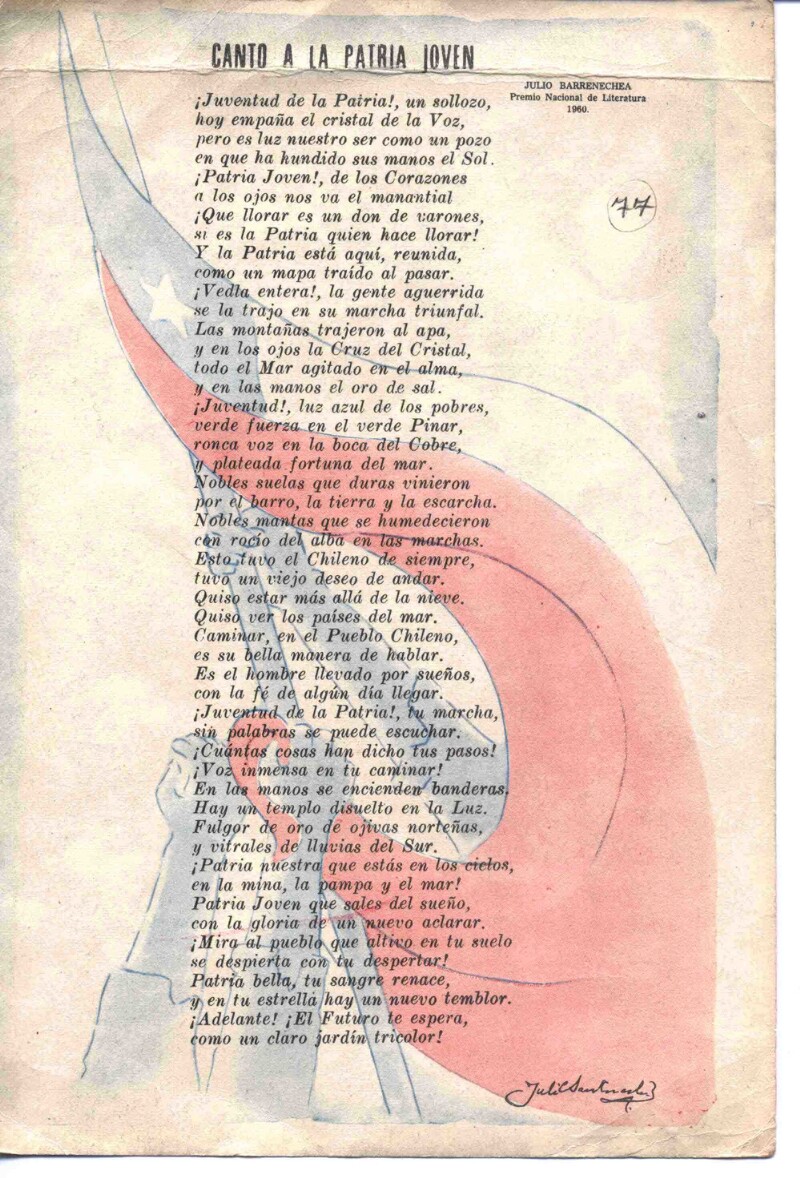 CANTO A LA PATRIA JOVEN
JULIO BARRENECHEA
Premio Nacional de Literatura
1960.
¡Juventud de la Patria!, un sollozo,
hoy empaña el cristal de la Voz,
pero es luz nuestro ser como un pozo
en que ha hundido sus manos el Sol.
¡Patria Joven!, de los Corazones
a los ojos nos va el manantial
¡Que llorar es un don de varones,
si es la Patria quien hace llorar!
Y la Patria está aquí, reunida,
como un mapa traído al pasar.
¡Vedla entera!, la gente aguerrida
se la trajo en su marcha triunfal.
Las montañas trajeron al apa,
y en los ojos la Cruz del Cristal,
todo el Mar agitado en el alma,
y en las manos el oro de sal.
¡Juventud!, luz azul de los pobres,
verde fuerza en el verde Pinar,
ronca voz en la boca del Cobre,
y plateada fortuna del mar.
Nobles suelas que duras vinieron
por el barro, la tierra y la escarcha.
Nobles mantas que se humedecieron
con rocío del alba en las marchas.
Esto tuvo el Chileno de siempre,
tuvo un viejo deseo de andar.
Quiso estar más allá de la nieve.
Quiso ver los países del mar.
Caminar, en el Pueblo Chileno,
es su bella manera de hablar.
Es el hombre llevado por sueños,
con la fé de algún día llegar.
¡Juventud de la Patria!, tu marcha,
sin palabras se puede escuchar.
¡Cuántas cosas han dicho tus pasos!
¡Voz inmensa en tu caminar!
En las manos se encienden banderas.
Hay un templo disuelto en la Luz.
Fulgor de oro de ojivas norteñas,
y vitrales de lluvias del Sur.
¡Patria nuestra que estás en los cielos,
en la mina, la pampa y el mar!
Patria Joven que sales del sueño,
con la gloria de un nuevo aclarar.
¡Mira al pueblo que altivo en tu suelo
se despierta con tu despertar!
Patria bella, tu sangre renace,
y en tu estrella hay un nuevo temblor.
¡Adelante! ¡El Futuro te espera,
como un claro jardín tricolor!
77